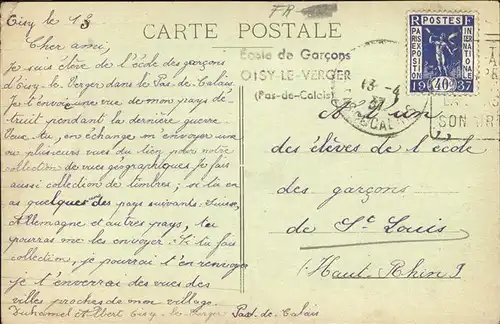 Oisy le 13
FR
CARTE POSTALE
Cher ami,
Je suis élève de l'école des garçons
d'Oisy-le-Verger dans le Pas-de-Calais.
Je t'envoie une vue de mon pays dé-
truit pendant la dernière guerre.
Peux-tu, en échange m'envoyer une
ou plusieurs vues du tien pour notre
collection de vues géographiques. Je fais
aussi collection de timbres; si tu en
as quelques uns des pays suivants: Suisse,
Allemagne et autres pays, tu
pourras me les envoyer. Si tu fais
collection, je pourrai t'en renvoyer
je t'enverrai des vues des
villes proches de mon village.
Duhamel Albert Oisy-le-Verger Pas-de-Calais
École de Garçons
OISY-LE-VERGER
(Pas-de-Calais)
R POSTES F
PARIS EXPOSITION
INTERNATIONALE
1937
40c
13-4
37
CALAIS
EN
SON
A l'un
des élèves de l'école
des garçons
de St Louis
(Haut-Rhin)